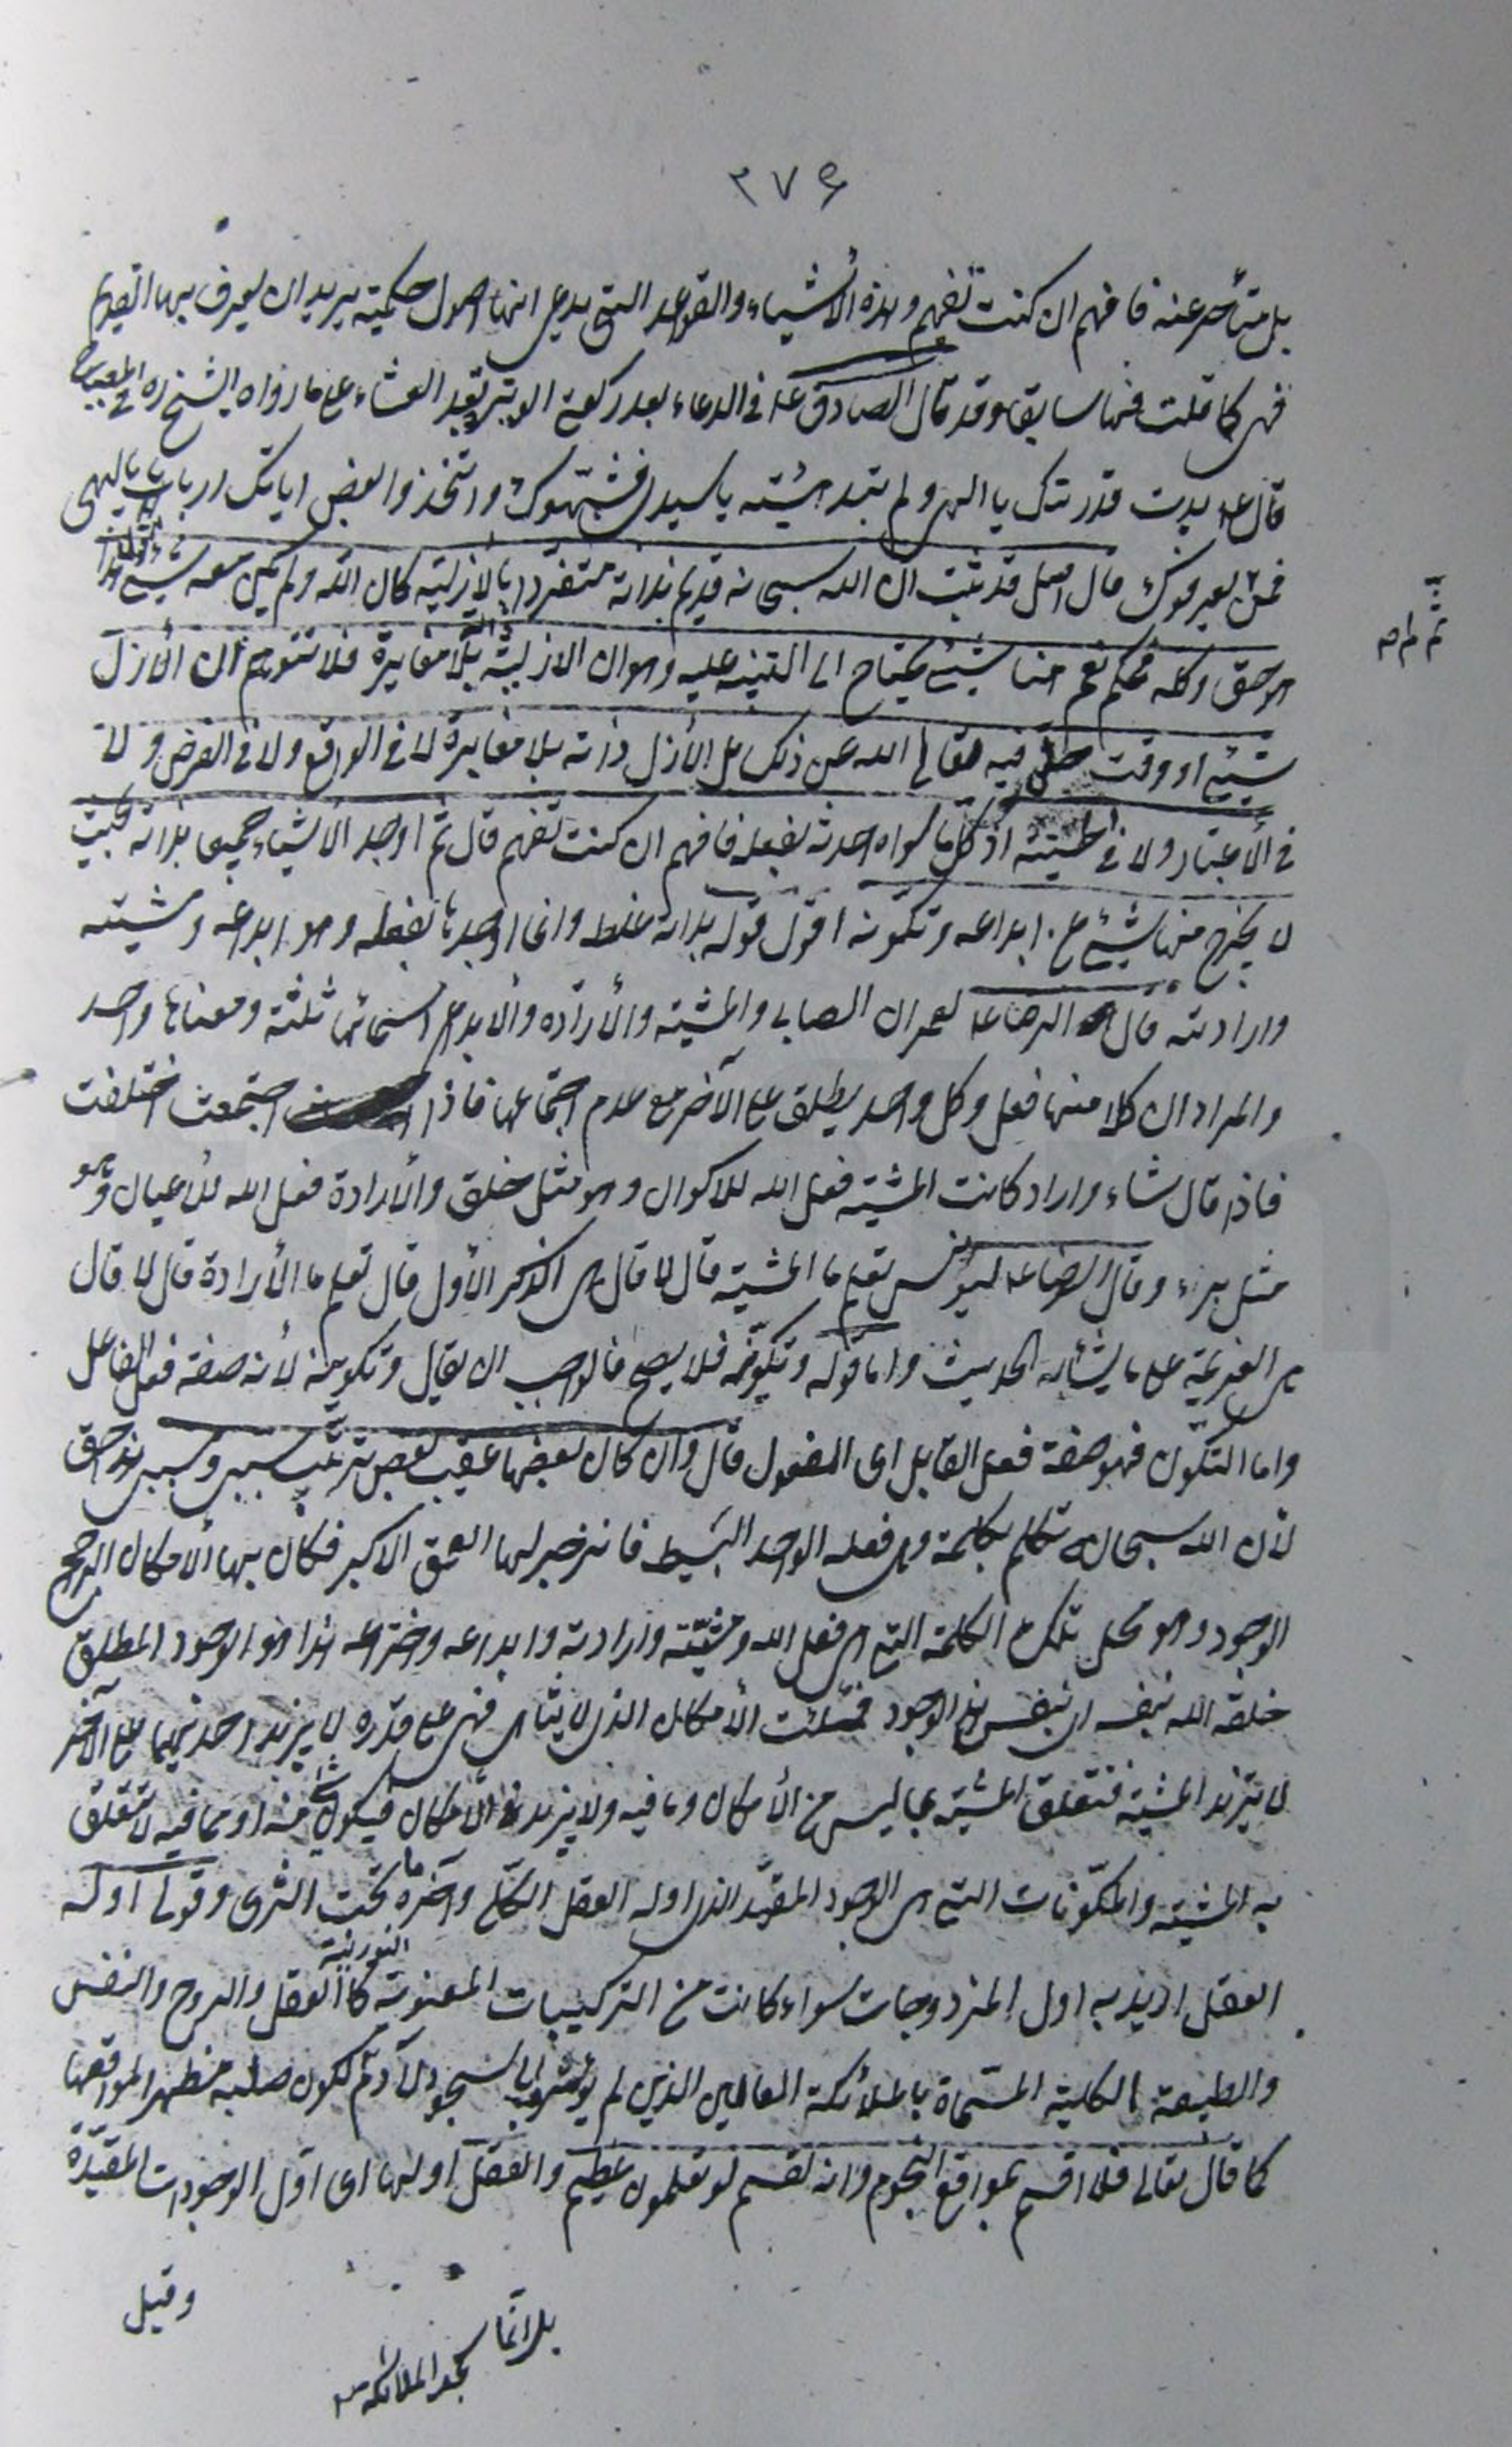 ٢٧۶
بل متأخر عنه فافهم ان كنت تفهم وهذه الأشياء والقواعد التي يدعي انها اصول حكمية يريد ان يعرف بها القديم
فهي كما قلت فيها سابقا وقد قال الصادق ع في الدعاء بعد ركعتي الوتيرة بعد العشاء على ما رواه الشيخ ره في المصباح
قال ع بدت قدرتك يا الهي ولم تبد هيئته يا سيدي فشبهوك واتخذوا بعض اياتك اربابا يا الهي
فمن ثم لم يعرفوك قال اصل قد ثبت ان الله سبحانه قديم بذاته متفرد بالازلية كان الله ولم يكن معه شيء اقول هذا
هو حق وكله محكم نعم هنا شيء يحتاج الى التنبيه عليه وهو ان الازلية ذاته بلا مغايرة فلا تتوهم ان الأزل
شيء او وقت حل فيه تعالى الله عن ذلك بل الأزل ذاته بلا مغايرة لا في الواقع ولا في الفرض ولا
في الأعتبار ولا في الحيثية اذ كل ما سواه احدثه بفعله فافهم ان كنت تفهم قال ثم اوجد الأشياء جميعا بذاته بحيث
لا يخرج منها شيء عن ابداعه وتكونه اقول قوله بذاته غلط وانما اوجدها بفعله وهو ابداعه ومشيته
وارادته قال الرضا ع لعمران الصابي والمشية والأرادة والأبداع اسمائها ثلثة ومعناها واحد
والمراد ان كلا منها فعل وكل واحد يطلق على الآخر مع عدم اجتماعها فاذا اجتمعت اختلفت
فاذا قال شاء واراد كانت المشية فعل الله للاكوان وهو مثل خلق والأرادة فعل الله للأعيان وهو
مثل برء وقال الرضا ع ليونس تعلم ما المشية قال لا قال هي الذكر الأول قال تعلم ما الأرادة قال لا قال
هي العزيمة على ما يشاء الحديث واما قوله وتكونه فلا يصح فالواجب ان يقال وتكوينه لأنه صفة فعل الفاعل
واما التكون فهو صفة فعل القابل اى المفعول قال وان كان بعضها عقيب بعض بترتيب سببي ومسببي هذا حق
لأن الله سبحانه تكلم بكلمة وهي فعله الواحد البسيط فانزجر لها العمق الاكبر فكان بها الأمكان الراجح
الوجود وهو محل تلك الكلمة التي هي فعل الله ومشيته وارادته وابداعه واختراعه هذا هو الوجود المطلق
خلقه الله بنفسه اى بنفس هذا الوجود فملئت الأمكان الذى لا يتناهى فهي على قدره لا يزيد احدهما على الآخر
لا تزيد المشية فتتعلق المشية بما ليس من الأمكان وما فيه ولا يزيد الأمكان فيكون شيء منه او مما فيه لا تتعلق
به المشية والمكونات التي هي الوجود المقيد الذى اوله العقل الكلي وآخره ما تحت الثرى وقولي اوله
العقل اريد به اول المزدوجات سواء كانت من التركيبات المعنوية كالعقل النورية والروح والنفس
والطبيعة الكلية المسماة بالملائكة العالين الذين لم يؤمروا بالسجود لآدم لكون صلبه مظهرا لمواقعها
كما قال تعالى فلا اقسم بمواقع النجوم وانه لقسم لو تعلمون عظيم والعقل اولها اى اول الوجودات المقيدة
وقيل
بل انما
سجد الملائكة